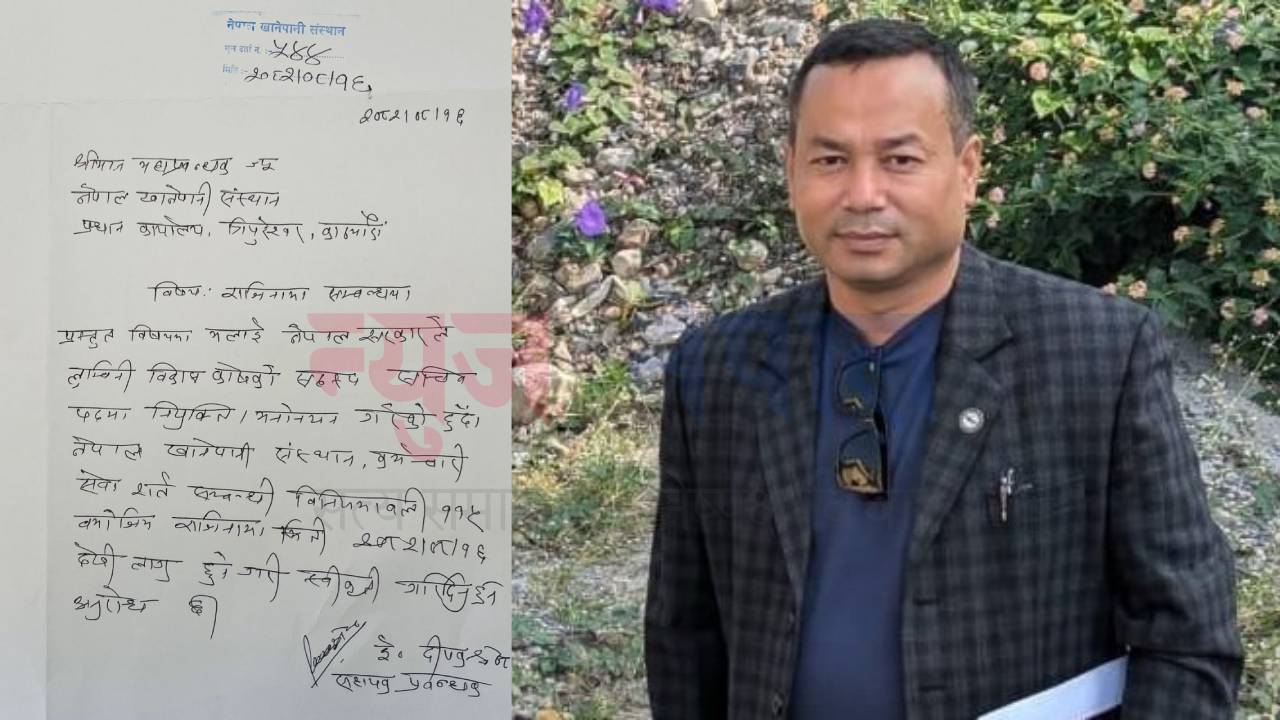 नेपाल खानेपानी संस्थान
मूल दर्ता नं. :- ५४४
मिति :- २०८२।०८।१६
२०८२।०८।१६
श्रीमान महाप्रबन्धक ज्यू
नेपाल खानेपानी संस्थान
प्रधान कार्यालय, त्रिपुरेश्वर, काठमाडौं
विषय: राजिनामा सम्बन्धमा।
प्रस्तुत विषयमा मलाई नेपाल सरकारले
लुम्बिनी विकास कोषको सदस्य सचिव
पदमा नियुक्ति/मनोनयन गरेको हुँदा
नेपाल खानेपानी संस्थान, कर्मचारी
सेवा शर्त सम्बन्धी विनियमावली ११९
बमोजिम राजिनामा मिति २०८२।०८।१६
देखी लागु हुने गरी स्वीकृती गरिदिनुहुन
अनुरोध छ।
ई. दीपक श्रेष्ठ
सहायक प्रबन्धक
न्यूज
सत्य